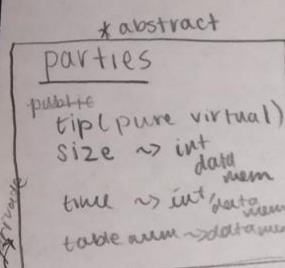 * abstract
parties
public
tip (pure virtual)
size ~> int
data
mem
time ~> int/data
mem
table num ~> data mem